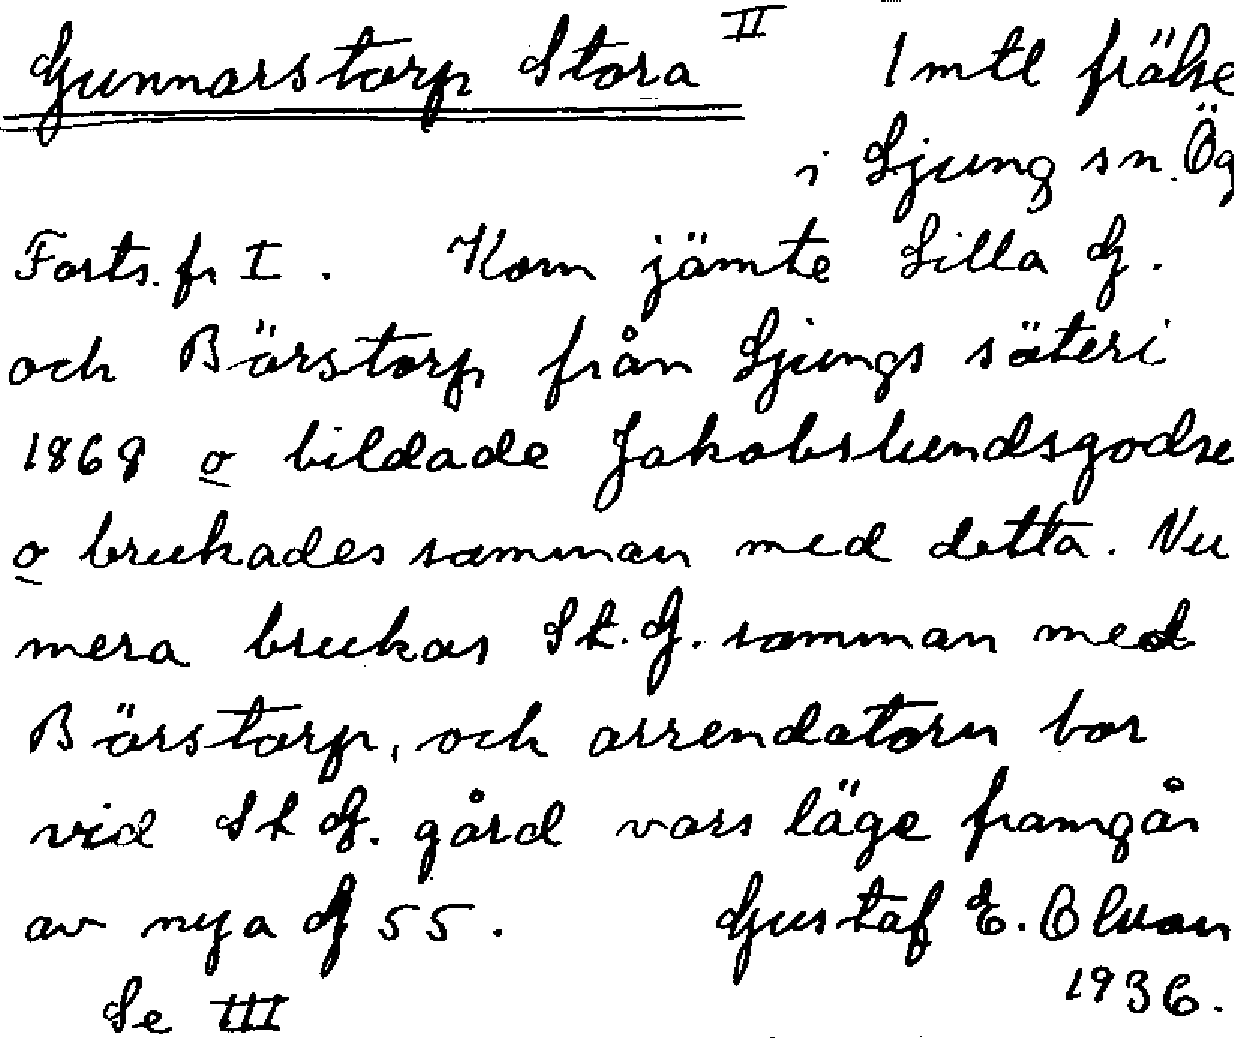 Gunnarstorp Stora II 1 mtl frälse
i Ljung sn. Ög
Forts. fr I. Kom jämte Lilla G.
och Bärstorp från Ljungs säteri
1868 o bildade Jakobslundsgodse
o brukades samman med detta. Nu
mera brukas St. G. samman med
Bärstorp, och arrendatorn bor
vid St G. gård vars läge framgår
av nya G 55. Gustaf E. Olson
Se III 1936.